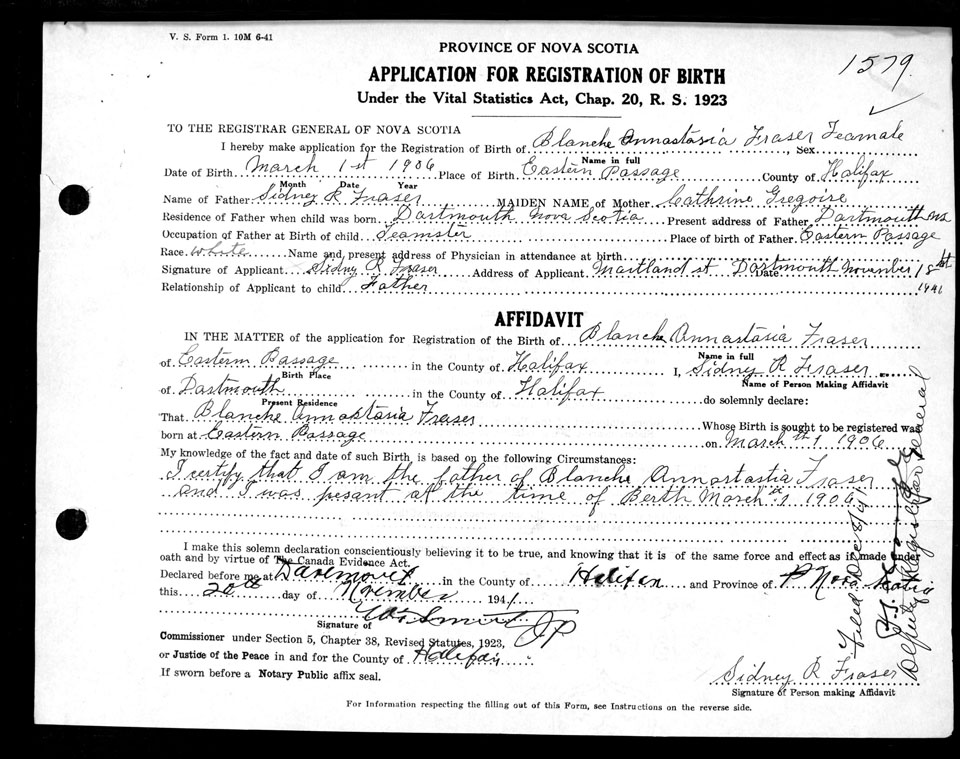 V. S. Form 1. 10M 6-41
PROVINCE OF NOVA SCOTIA
1579
APPLICATION FOR REGISTRATION OF BIRTH
Under the Vital Statistics Act, Chap. 20, R. S. 1923
TO THE REGISTRAR GENERAL OF NOVA SCOTIA
I hereby make application for the Registration of Birth of Blanche Annastasia Fraser, Sex Feamale
Name in full
Date of Birth March 1st 1906 Place of Birth Eastern Passage County of Halifax
Month Date Year
Name of Father Sidney R Fraser MAIDEN NAME of Mother Cathrine Gregoire
Residence of Father when child was born Dartmouth Nova Scotia Present address of Father Dartmouth NS
Occupation of Father at Birth of child Teamster Place of birth of Father Eastern Passage
Race White Name and present address of Physician in attendance at birth
Signature of Applicant Sidney R Fraser Address of Applicant Maitland st Dartmouth Date November 18
1941
Relationship of Applicant to child Father
AFFIDAVIT
IN THE MATTER of the application for Registration of the Birth of Blanche Annastasia Fraser
Name in full
of Eastern Passage in the County of Halifax I, Sidney R Fraser
Birth Place Name of Person Making Affidavit
of Dartmouth in the County of Halifax do solemnly declare:
Present Residence
That Blanche Annastasia Fraser Whose Birth is sought to be registered was
born at Eastern Passage on March th 1 1906
My knowledge of the fact and date of such Birth is based on the following Circumstances:
I certify that I am the father of Blanche Annastastia Fraser
and I was pesant at the time of Berth March 1 1906
I make this solemn declaration conscientiously believing it to be true, and knowing that it is of the same force and effect as if made under
oath and by virtue of The Canada Evidence Act.
Declared before me at Dartmouth in the County of Halifax and Province of Nova Scotia
this 20th day of November 1941
Signature of JP
Commissioner under Section 5, Chapter 38, Revised Statutes, 1923,
or Justice of the Peace in and for the County of Halifax
If sworn before a Notary Public affix seal.
Sidney R Fraser
Signature of Person making Affidavit
For Information respecting the filling out of this Form, see Instructions on the reverse side.
Filed Dec 8/41
Deputy Registrar General